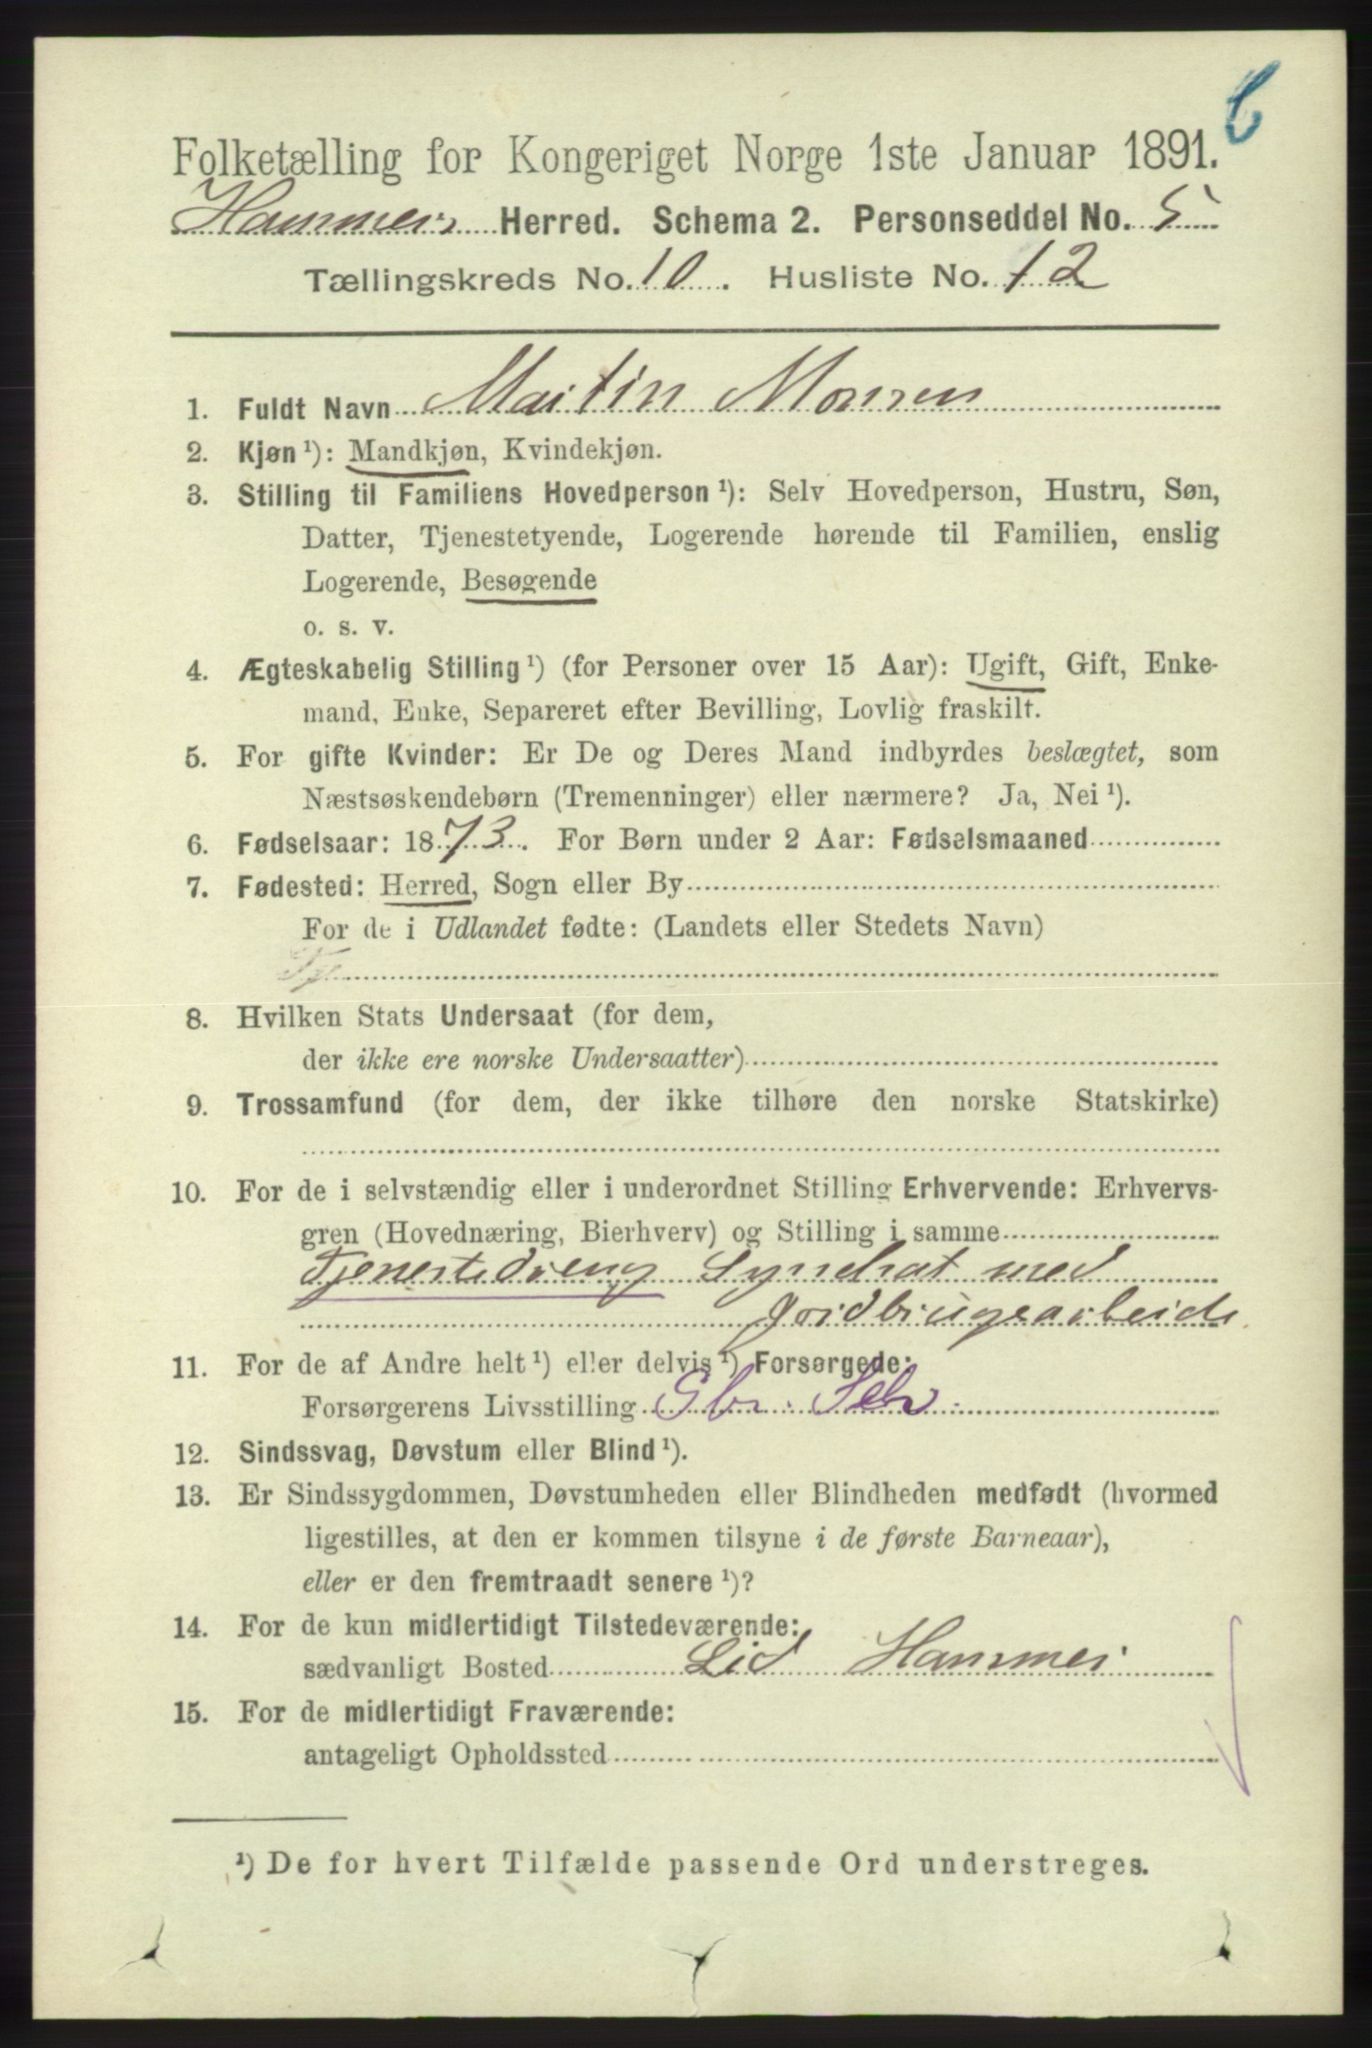 6
Folketælling for Kongeriget Norge 1ste Januar 1891.
Hammers Herred. Schema 2. Personseddel No. 5
Tællingskreds No. 10. Husliste No. 12
1. Fuldt Navn Martin Monsen
2. Kjøn ¹): Mandkjøn, Kvindekjøn.
3. Stilling til Familiens Hovedperson ¹): Selv Hovedperson, Hustru, Søn,
Datter, Tjenestetyende, Logerende hørende til Familien, enslig
Logerende, Besøgende
o. s. v.
4. Ægteskabelig Stilling ¹) (for Personer over 15 Aar): Ugift, Gift, Enke-
mand, Enke, Separeret efter Bevilling, Lovlig fraskilt.
5. For gifte Kvinder: Er De og Deres Mand indbyrdes beslægtet, som
Næstsøskendebørn (Tremenninger) eller nærmere? Ja, Nei ¹).
6. Fødselsaar: 1873. For Børn under 2 Aar: Fødselsmaaned
7. Fødested: Herred, Sogn eller By
For de i Udlandet fødte: (Landets eller Stedets Navn)
Tj
8. Hvilken Stats Undersaat (for dem,
der ikke ere norske Undersaatter)
9. Trossamfund (for dem, der ikke tilhøre den norske Statskirke)
10. For de i selvstændig eller i underordnet Stilling Erhvervende: Erhvervs-
gren (Hovednæring, Bierhverv) og Stilling i samme
Tjenestedreng Sysselsat med
Jordbrugsarbeide
11. For de af Andre helt ¹) eller delvis ¹) Forsørgede:
Forsørgerens Livsstilling Gbr. Selv.
12. Sindssvag, Døvstum eller Blind ¹).
13. Er Sindssygdommen, Døvstumheden eller Blindheden medfødt (hvormed
ligestilles, at den er kommen tilsyne i de første Barneaar),
eller er den fremtraadt senere ¹)?
14. For de kun midlertidigt Tilstedeværende:
sædvanligt Bosted Lid Hammer
15. For de midlertidigt Fraværende:
antageligt Opholdssted
¹) De for hvert Tilfælde passende Ord understreges.